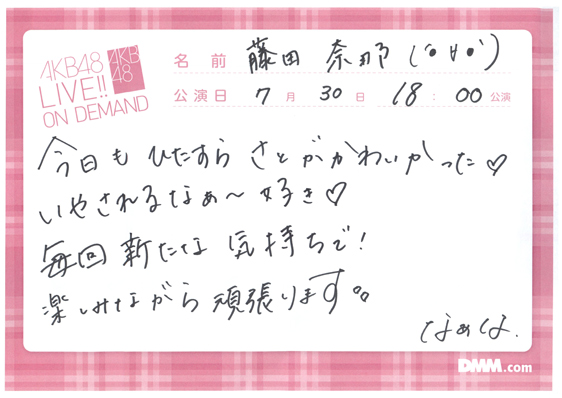 AKB48
LIVE!!
ON DEMAND
AKB
48
名前 藤田 奈那 (・∀・)
公演日 7月30日 18:00公演
今日もひたすらさとがかわいかった♡
いやされるなぁ〜好き♡
毎回新たな気持ちで!
楽しみながら頑張ります。
なぁな.
DMM.com